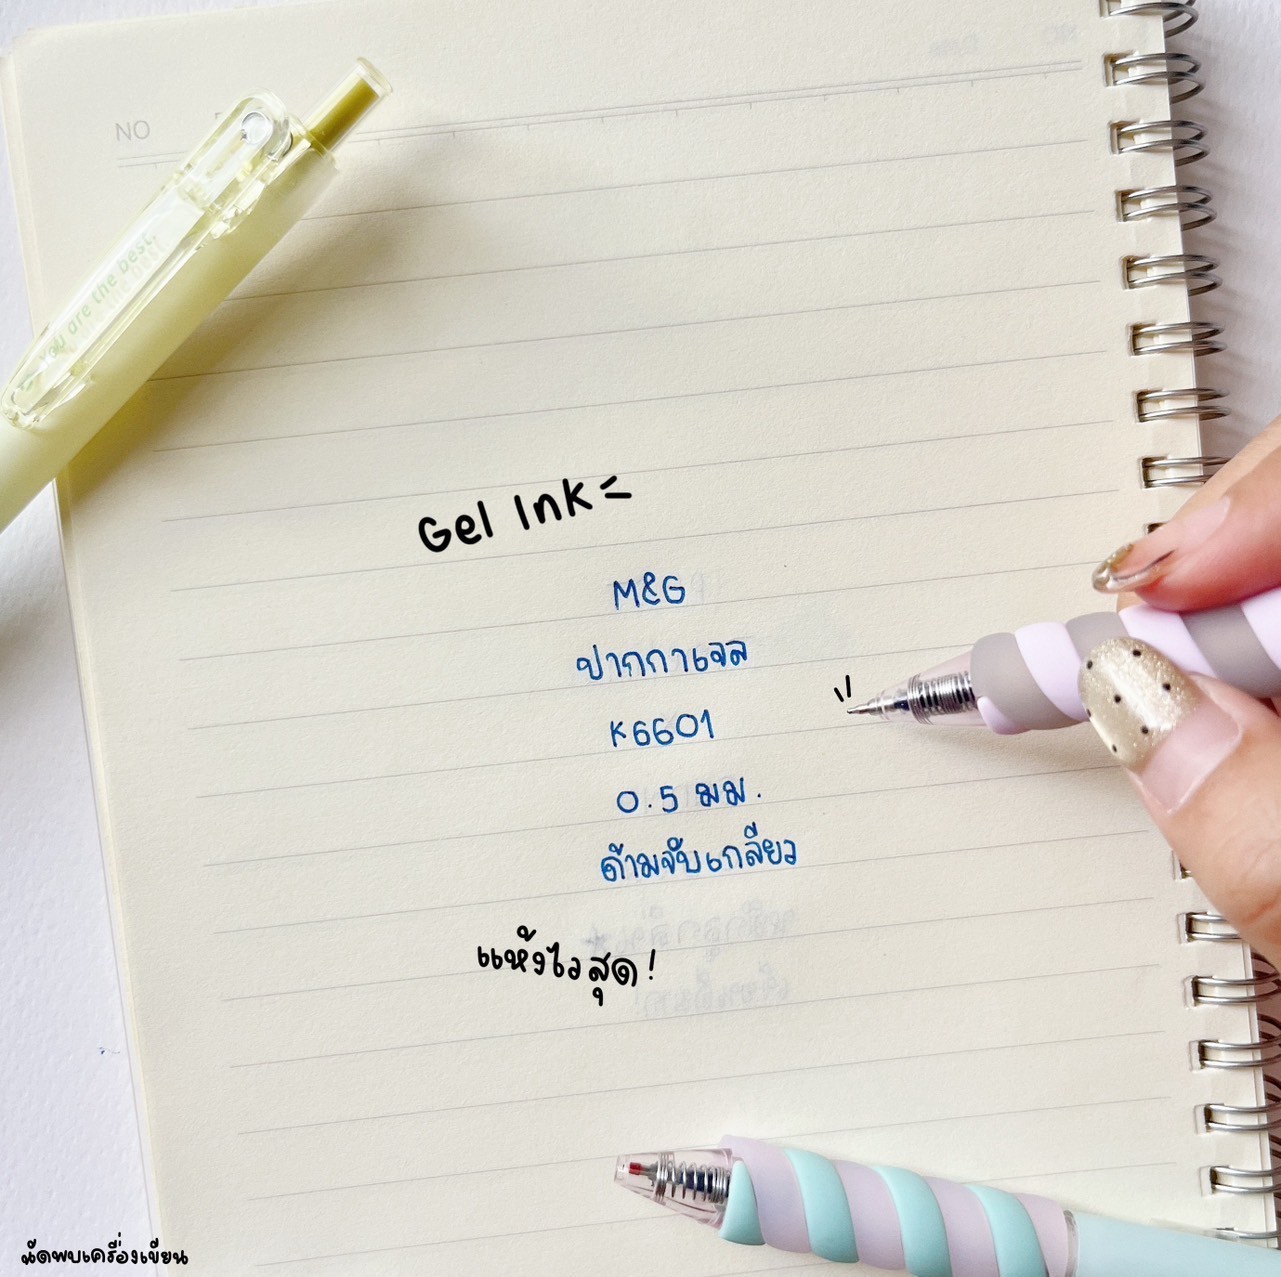 NO
You are the best.
Gel Ink
M&G
ปากกาเจล
K6601
0.5 มม.
ด้ามจับเกลียว
แห้งไวสุด!
นัดพบเครื่องเขียน